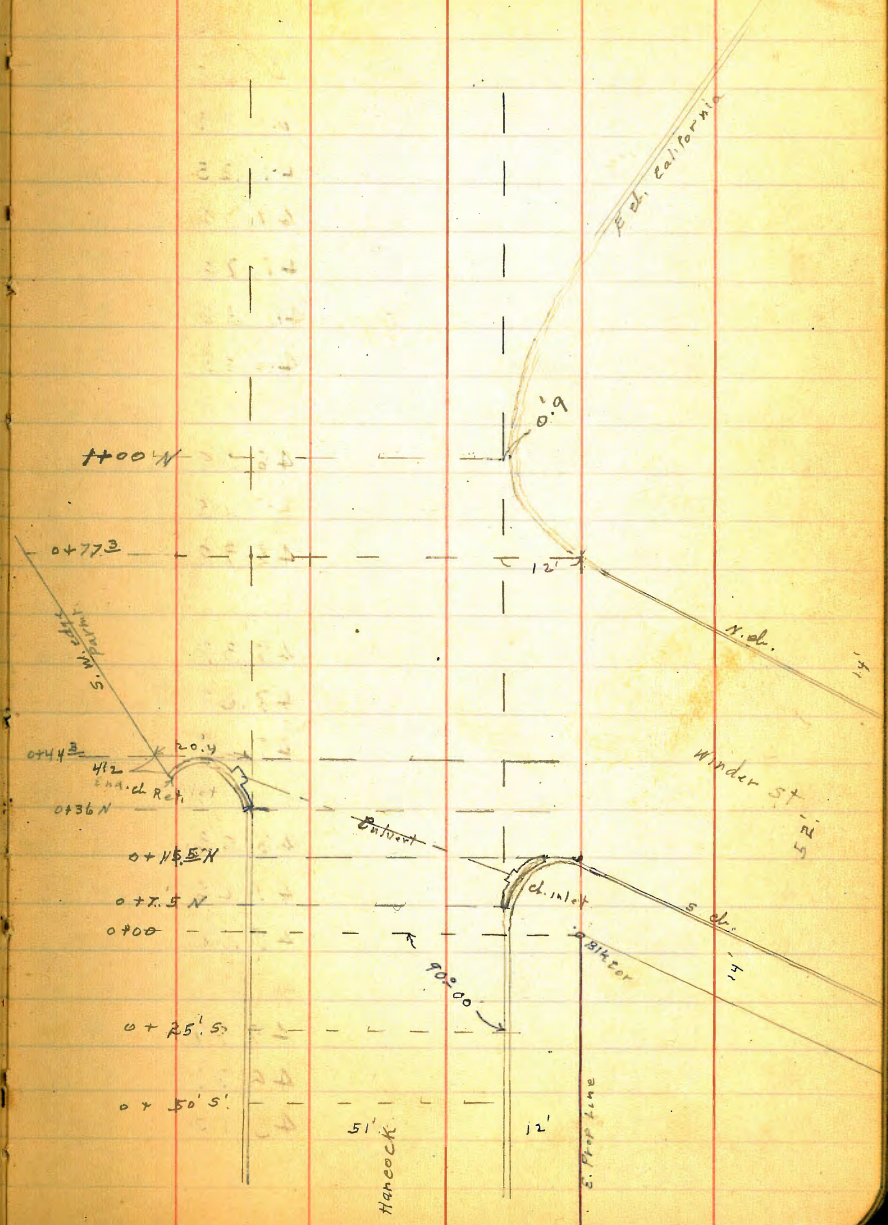 E. cb. California
0'.9
1+00 N
0+77.3
12'
S.W. edge
pavmt.
N. cb.
14'
0+44.3
20'.4
4'.2
End. cb Ret.
0+36 N
Winder St
52'
Culvert
0+15.5 N
cb. inlet
0+7.5 N
S cb.
0+00
Blk cor
14'
90°00
0+25'.S.
0+50'S'.
51'
Hancock
12'
E. Prop Line